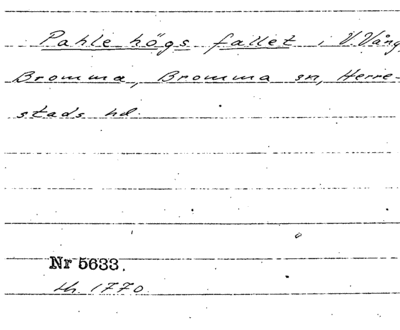 Pahle högs fallet i V. Vång,
Bromma, Bromma sn, Herre-
stads hd.
Nr 5633.
Lh. 1770.